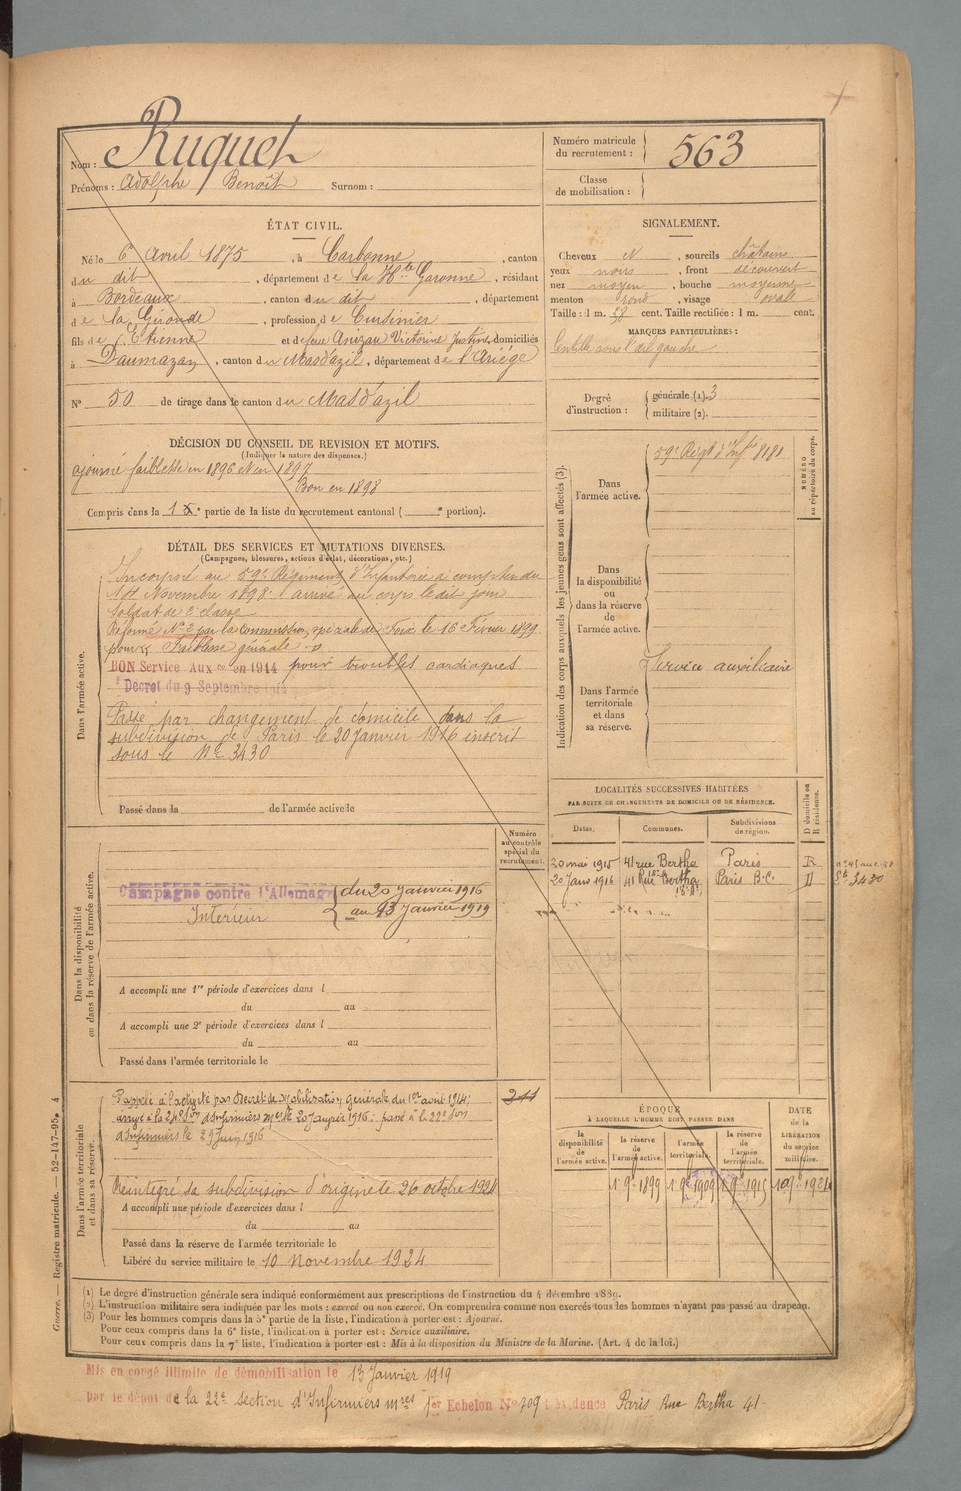 Nom : Ruquet
Prénoms : Adolphe Benoît Surnom :
Numéro matricule du recrutement : 563
Classe de mobilisation :
ÉTAT CIVIL.
Né le 6 Avril 1875, à Carbonne, canton
du dit, département de la Hte Garonne, résidant
à Bordeaux, canton du dit, département
de la Gironde, profession de Cuisinier
fils de Etienne et de feue Anizau Victorine Justine, domiciliés
à Daumazan, canton du Masdazil, département de l'Ariège
N° 50 de tirage dans le canton du Masdazil
SIGNALEMENT.
Cheveux N, sourcils châtains
yeux , front découvert
nez moyen, bouche moyenne
menton rond, visage ovale
Taille : 1 m. 58 cent. Taille rectifiée : 1 m. cent.
MARQUES PARTICULIÈRES :
Lentille sous l'œil gauche
Degré d'instruction : générale (1). 3
militaire (2).
DÉCISION DU CONSEIL DE REVISION ET MOTIFS.
(Indiquer la nature des dispenses.)
ajourné faiblesse en 1896 et en 1897
Bon en 1898
Compris dans la 1 e partie de la liste du recrutement cantonal ( e portion).
Indication des corps auxquels les jeunes gens sont affectés (3).
NUMÉRO au répertoire du corps.
Dans l'armée active.
59e Régt d'Infie 8181
Dans la disponibilité ou dans la réserve de l'armée active.
Dans l'armée territoriale et dans sa réserve.
Service auxiliaire
DÉTAIL DES SERVICES ET MUTATIONS DIVERSES.
(Campagnes, blessures, actions d'éclat, décorations, etc.)
Dans l'armée active.
Incorporé au 59e Régiment d'Infanterie à compter du
Novembre 1898. arrivé au corps le dit jour
soldat de 2e classe
Réformé N° 2 par la commission spéciale de Foix le 16 Février 1899
pour Faiblesse générale
BON Service Auxre en 1914 pour troubles cardiaques
Décret du 9 Septembre 1914
Passé par changement de domicile dans la
subdivision de Paris le 20 Janvier 1916 inscrit
sous le N° 3430
Passé dans la de l'armée active le
LOCALITÉS SUCCESSIVES HABITÉES
PAR SUITE DE CHANGEMENTS DE DOMICILE OU DE RÉSIDENCE.
Dates. Communes. Subdivisions de région. D domicile ou R résidence.
20 mai 1915 41 rue Bertha Paris R
20 Janv 1916 41 Rue Bertha Paris B.C. D 3430
Numéro au contrôle spécial du recrutement.
Dans la disponibilité ou dans la réserve de l'armée active.
Campagne contre l'Allemagne du 20 janvier 1916
Intérieur au 13 Janvier 1919
A accompli une 1re période d'exercices dans l
du au
A accompli une 2e période d'exercices dans l
du au
Passé dans l'armée territoriale le
Dans l'armée territoriale et dans sa réserve.
Rappelé à l'activité par Décret de Mobilisation générale du 1er août 1914;
arrivé à la 24e Son d'Infirmiers mres le 20 Janvier 1916; passé à la 22e Son
d'Infirmiers le 29 Juin 1916
Réintégré sa subdivision d'origine le 26 octobre 1921
A accompli une période d'exercices dans l
du au
Passé dans la réserve de l'armée territoriale le
Libéré du service militaire le 10 Novembre 1924
ÉPOQUE
À LAQUELLE L'HOMME DOIT PASSER DANS
la disponibilité de l'armée active.
la réserve de l'armée active.
l'armée territoriale.
la réserve de l'armée territoriale.
DATE de la LIBÉRATION du service militaire.
1 9e 1899
(1) Le degré d'instruction générale sera indiqué conformément aux prescriptions de l'instruction du 4 décembre 1889.
(2) L'instruction militaire sera indiquée par les mots : exercé ou non exercé. On comprendra comme non exercés tous les hommes n'ayant pas passé au drapeau.
(3) Pour les hommes compris dans la 5e partie de la liste, l'indication à porter est : Ajourné.
Pour ceux compris dans la 6e liste, l'indication à porter est : Service auxiliaire.
Pour ceux compris dans la 7e liste, l'indication à porter est : Mis à la disposition du Ministre de la Marine. (Art. 4 de la loi.)
Guerre. — Registre matricule. — 52-147-95. 4
Mis en congé illimité de démobilisation le 13 Janvier 1919
par le dépôt de la 22e section d'Infirmiers mres 1er Echelon N° 709 Résidence Paris Rue Bertha 41.